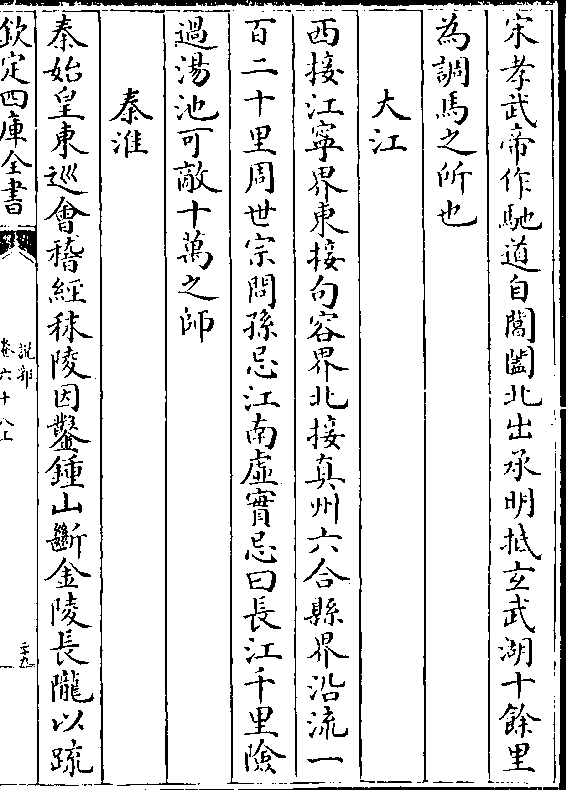 宋孝武帝作馳道自閶闔北出承明抵玄武湖十餘里
為調馬之所也
大江
西接江寧界東接句容界北接真州六合縣界沿流一
百二十里周世宗問孫忌江南虛實忌曰長江千里險
過湯池可敵十萬之師
秦淮
秦始皇東巡會稽經秣陵因鑿鍾山斷金陵長隴以疏
欽定四庫全書
說郛
卷六十八上
三十九